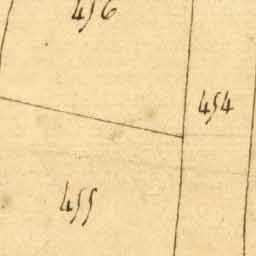 456
454
455